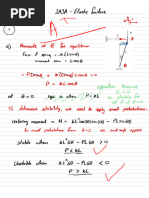 3A3A - Elastic Failure
A
1
a) Moments at B for equilibrium
Force of spring = k L sinθ
moment = k(L sinθ) L cosθ
-P L sinθ + k(L sinθ) L cosθ = 0
P = kL cosθ
at θ = 0 P = kL
To determine stability, we need to apply small perturbations
restoring moment = kL² cosδθ sinδθ - PL sinδθ
for small perturbations = kL²δθ - PLδθ
stable when kL²δθ - PLδθ > 0
P < kL
Unstable when kL²δθ - PLδθ < 0
P > kL